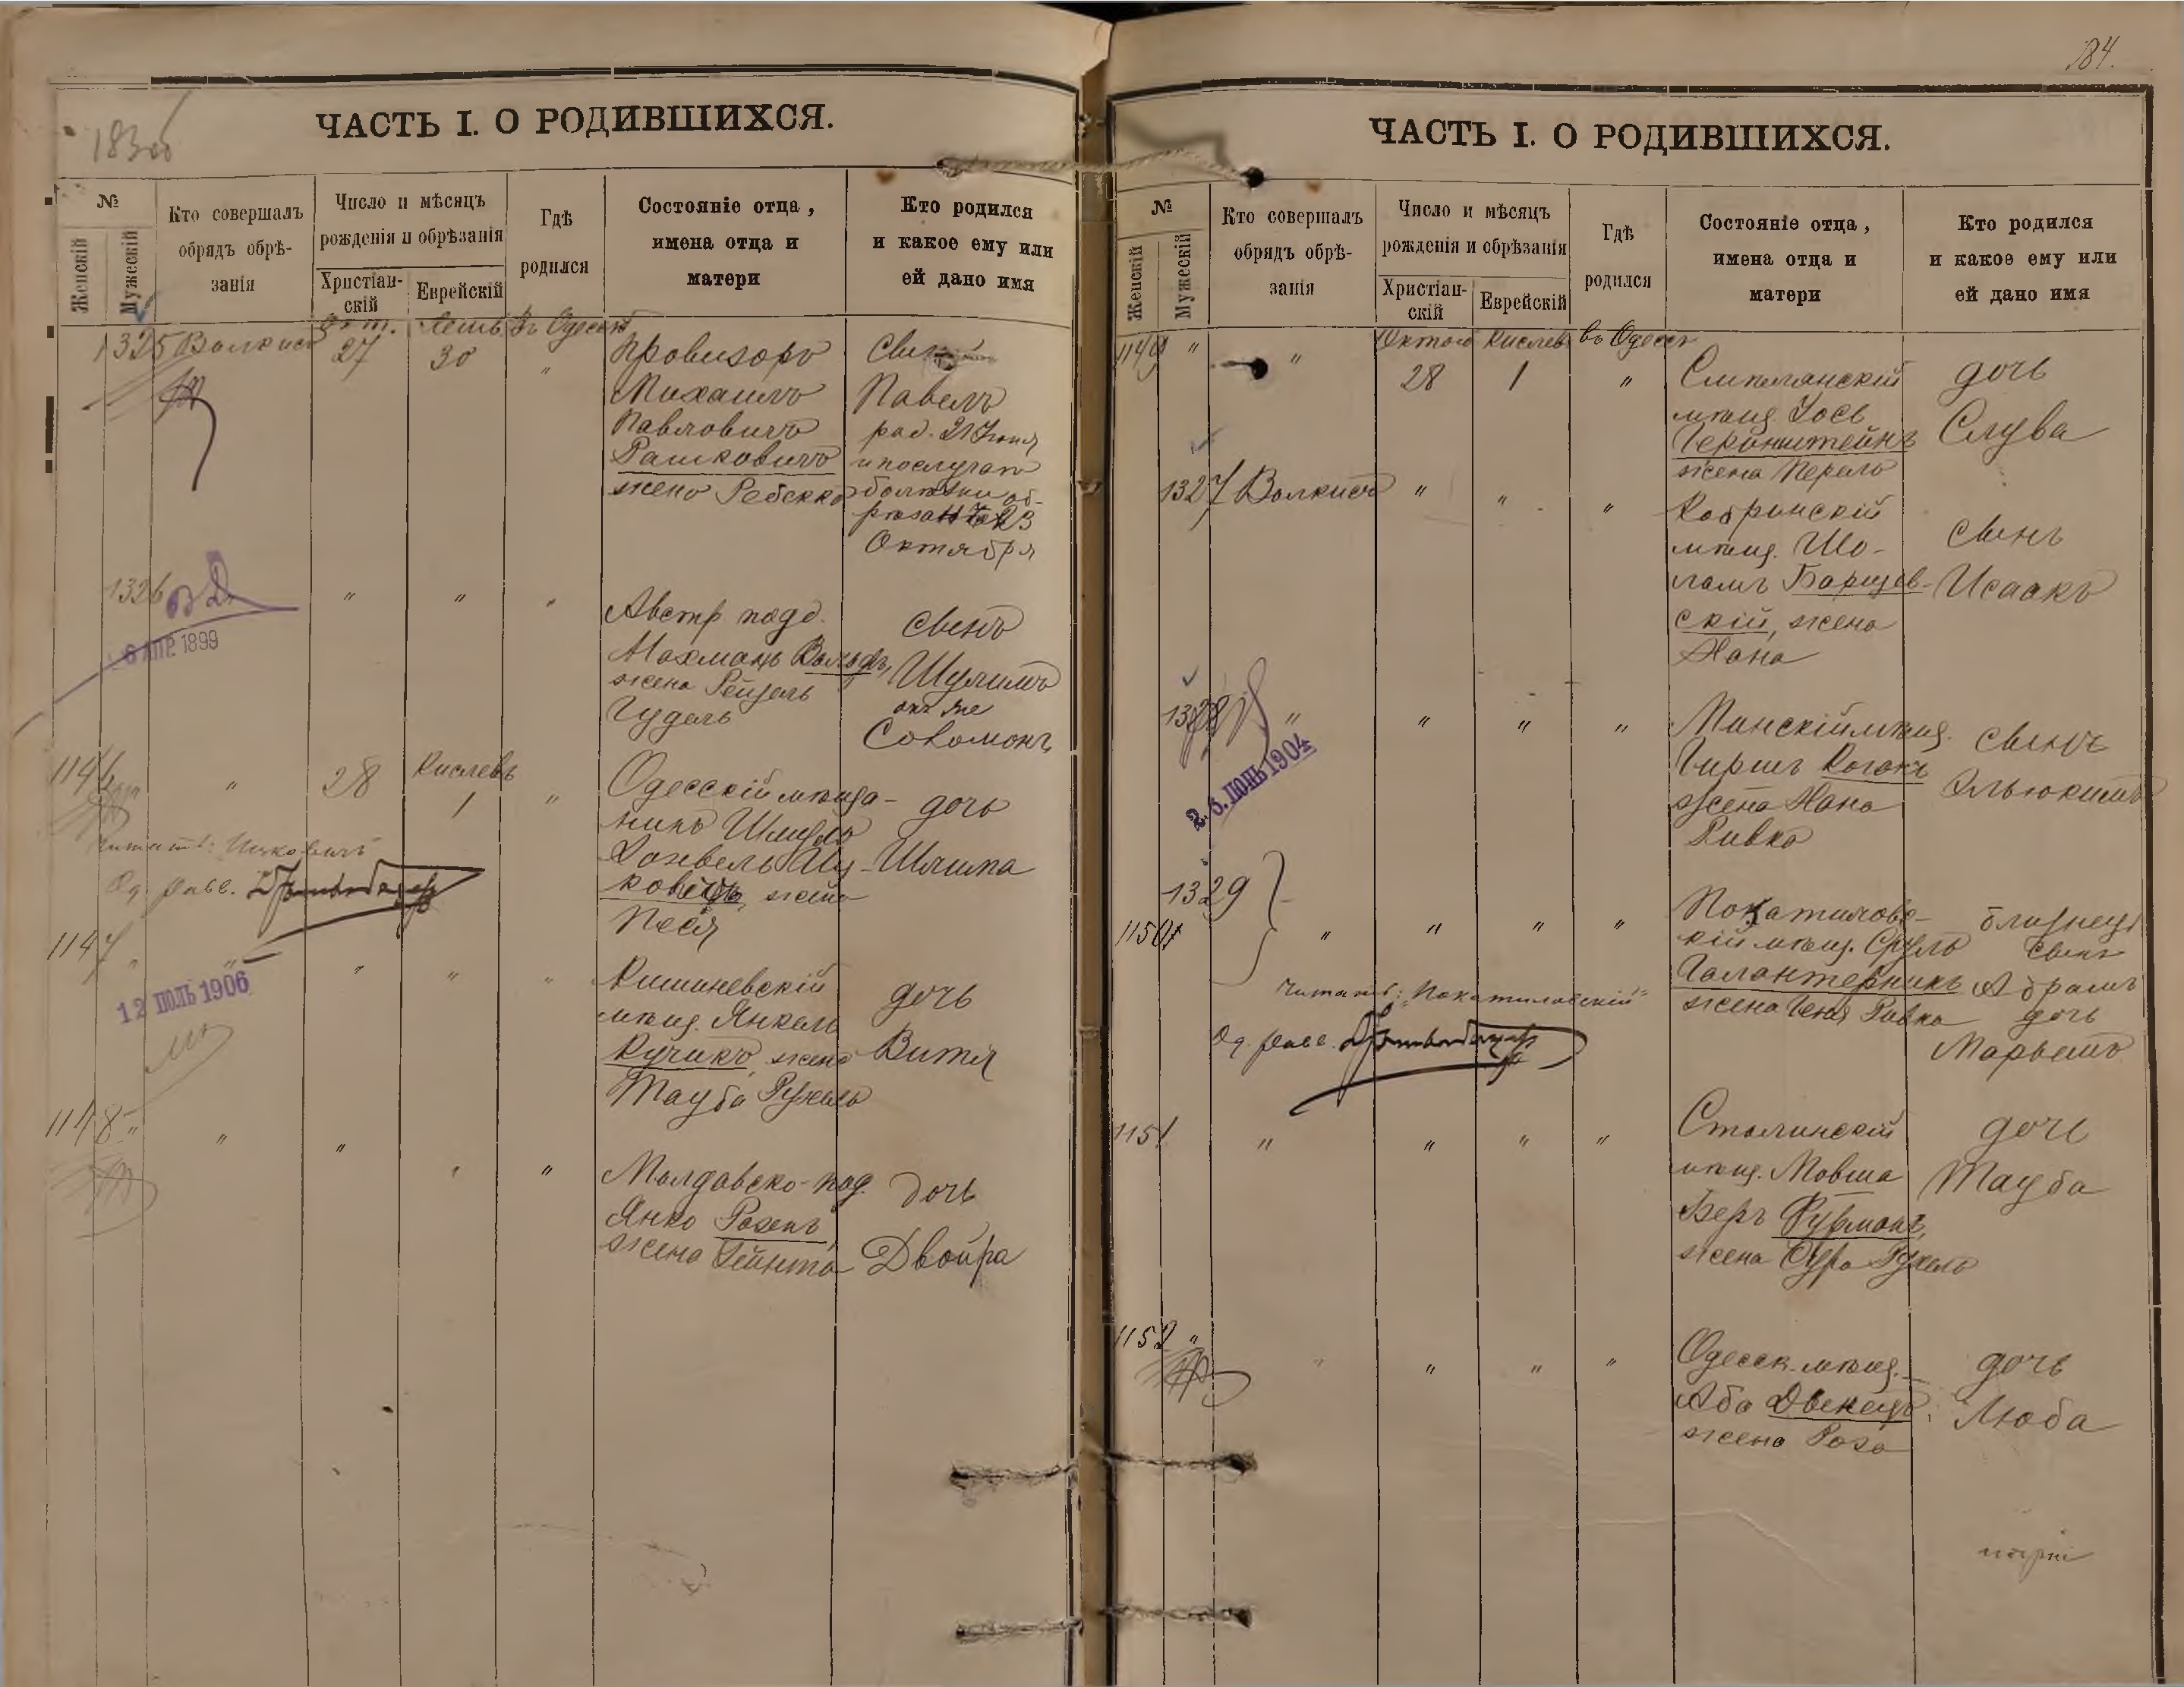 183об
ЧАСТЬ I. О РОДИВШИХСЯ.
№
Женскій
Мужескій
Кто совершалъ
обрядъ обрѣ-
занія
Число и мѣсяцъ
рожденія и обрѣзанія
Христіан-
скій
Еврейскій
Гдѣ
родился
Состояніе отца,
имена отца и
матери
Кто родился
и какое ему или
ей дано имя
1325
Окт.
27
30
"
Провизоръ
Михаилъ
Павловичъ
Рашковичъ
жена Ребекка
сынъ
Павелъ
род. 21 Іюня
и по случаю
болѣзни об-
рѣзанъ 23
Октября
1326
6 АПР. 1899
" " "
Австр. подд.
Нахманъ Вольфъ,
жена Рейзель
Гудель
сынъ
Шулимъ
онъ же
Соломонъ
1146
"
28
Кислевъ
1
"
Одесскій мѣща-
нинъ Шмуль
жена
Песя
дочь
Одес. равв.
1147
" "
12 ІЮЛЬ 1906
" " "
Кишиневскій
мѣщ. Янкель
Кучикъ, жена
Тауба Рухель
дочь
Витя
1148
" " " " "
Молдавско-под.
Янко Розенъ,
жена
дочь
Двойра
184.
ЧАСТЬ I. О РОДИВШИХСЯ.
№
Женскій
Мужескій
Кто совершалъ
обрядъ обрѣ-
занія
Число и мѣсяцъ
рожденія и обрѣзанія
Христіан-
скій
Еврейскій
Гдѣ
родился
Состояніе отца,
имена отца и
матери
Кто родился
и какое ему или
ей дано имя
1149
" "
28
Кислевъ
1
въ Одессѣ
"
мѣщ. Іось
Беронштейнъ
жена Перель
дочь
Слува
1327
" " "
Кобринскій
мѣщ. Шо-
ломъ Борщев-
скій, жена
Хана
сынъ
Исаакъ
1328
"
2. 3. ІЮНЬ 1904
" " "
Минскій мѣщ.
Гиршъ Коганъ
жена Хана
Ривка
сынъ
Эльюкимъ
1329
1150
" " " "
Покатиловс-
кій мѣщ. Сруль
Галантерникъ
жена Геня Ривка
близнецы
сынъ
Абрамъ
дочь
Марьемъ
читать: "Покатиловскій"
Од. равв.
1151
" " " "
Столинскій
мѣщ. Мовша
Беръ Фурманъ,
жена Сура Рухель
дочь
Тауба
1152 "
" " " "
Одесск. мѣщ.
Аба Двенецъ,
жена Роза
дочь
Люба